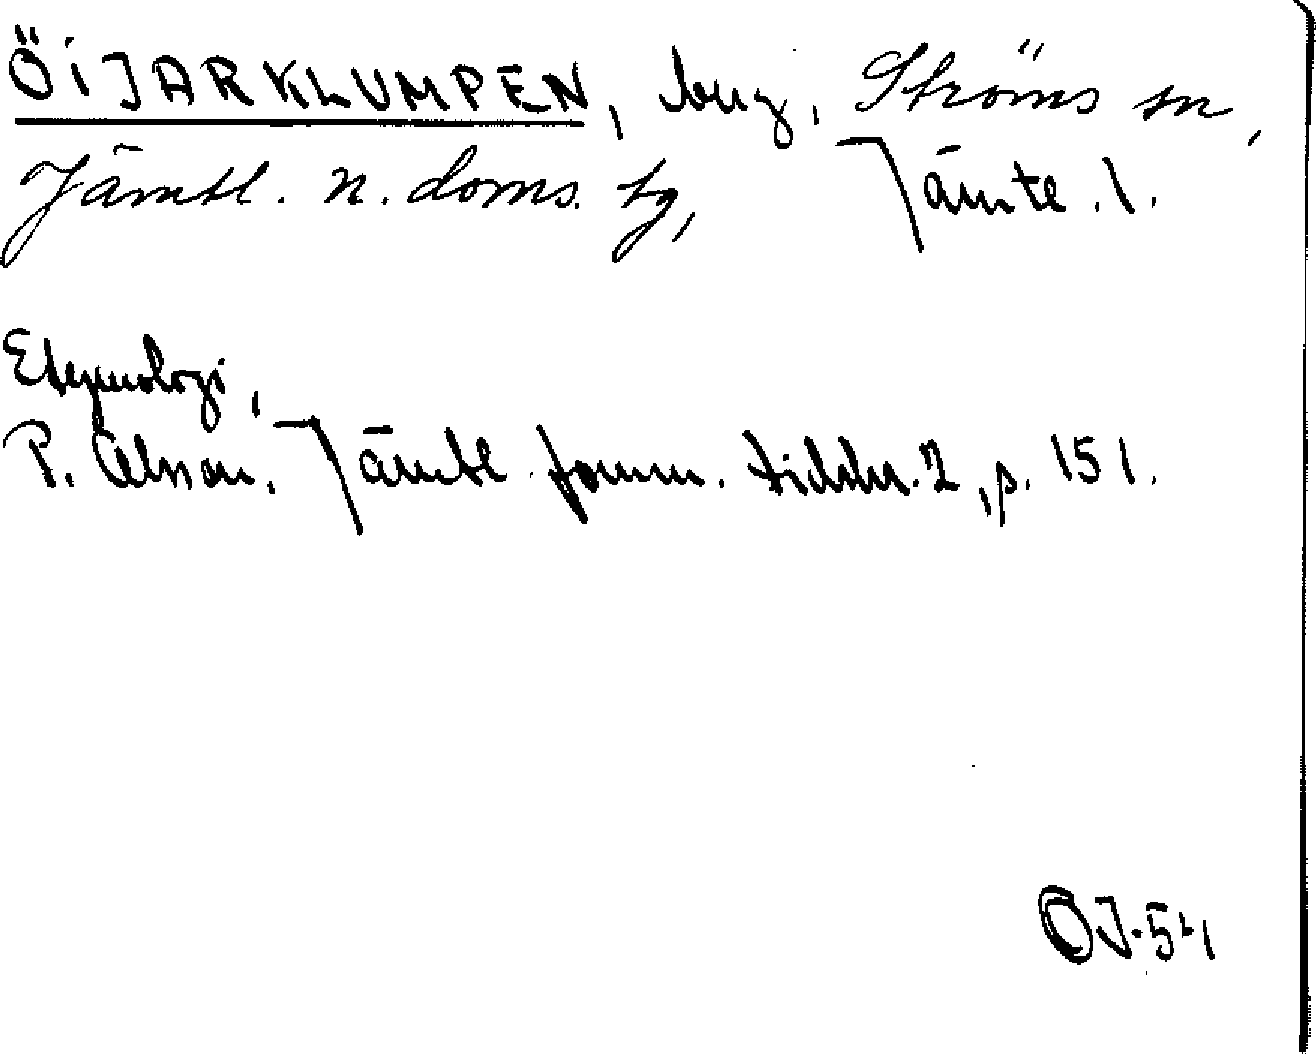 ÖIJARKLUMPEN, berg, Ströms sn,
Jämtl. n. doms. tg, Jämtl. l.
Etymologi,
P. Olsson. Jämtl. fornm. tidskr. 2, p. 151.
OJ-54